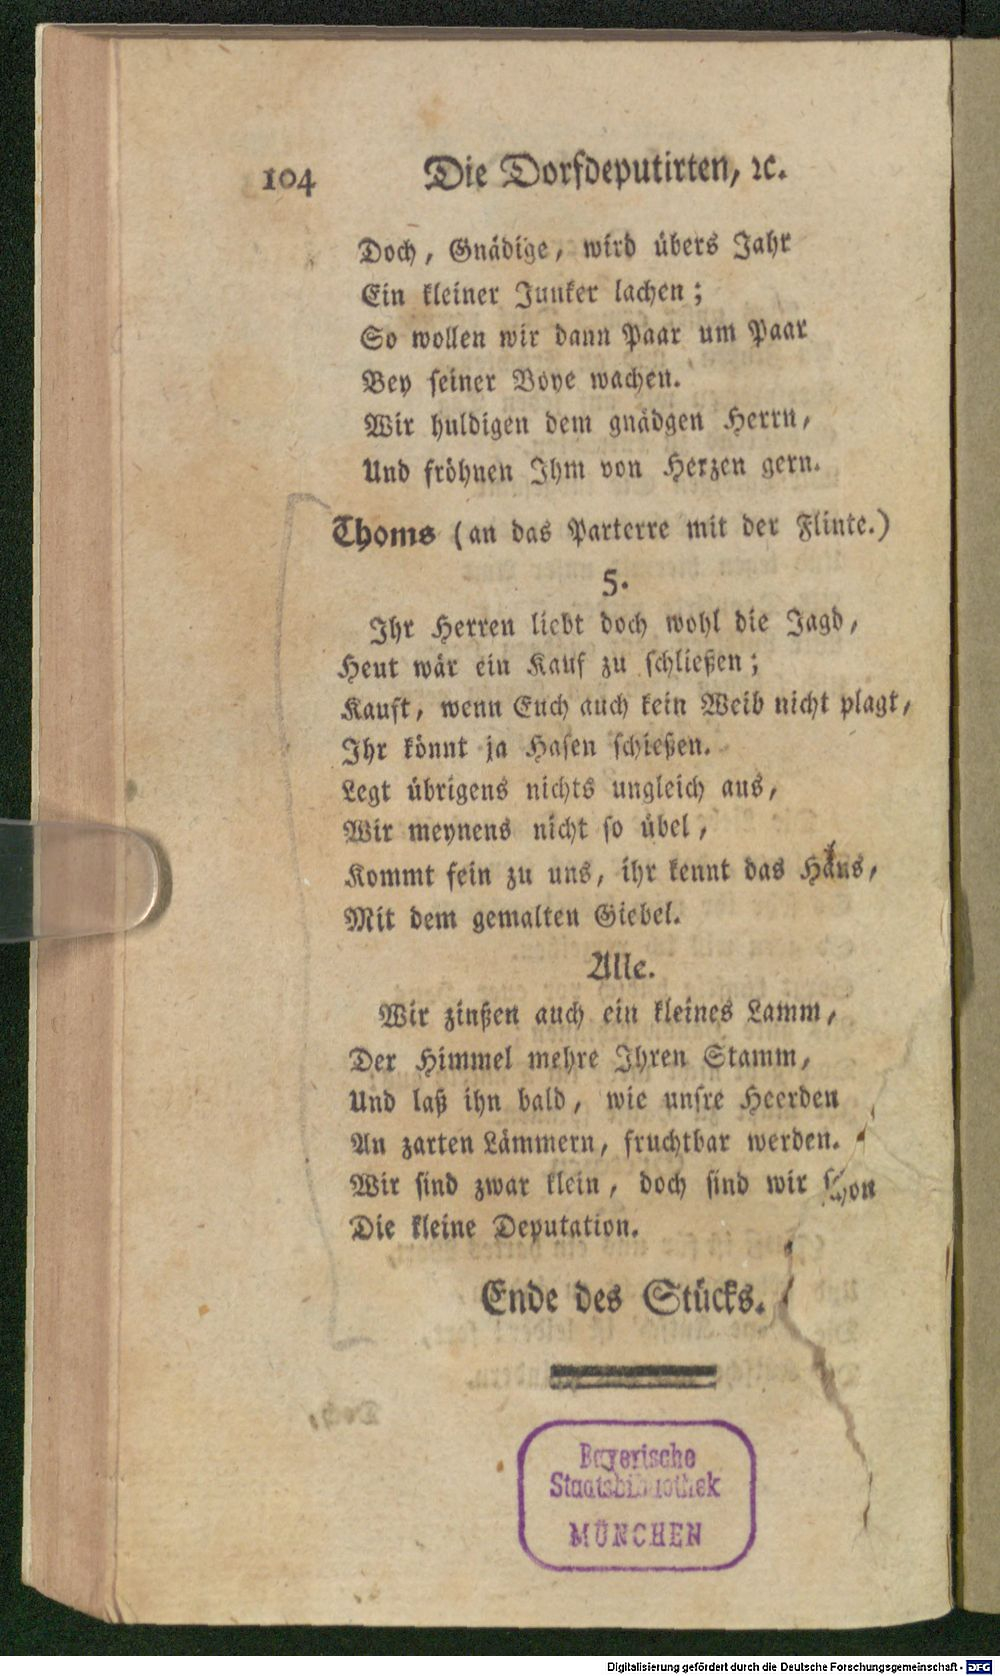 104 Die Dorfdeputirten, ꝛc.
Doch, Gnädige, wird übers Jahr
Ein kleiner Junker lachen;
So wollen wir dann Paar um Paar
Bey seiner Boye wachen.
Wir huldigen dem gnädgen Herrn,
Und fröhnen Ihm von Herzen gern.
Thoms (an das Parterre mit der Flinte.)
5.
Ihr Herren liebt doch wohl die Jagd,
Heut wär ein Kauf zu schließen;
Kauft, wenn Euch auch kein Weib nicht plagt,
Ihr könnt ja Hasen schießen.
Legt übrigens nichts ungleich aus,
Wir meynens nicht so übel,
Kommt fein zu uns, ihr kennt das Haus,
Mit dem gemalten Giebel.
Alle.
Wir zinßen auch ein kleines Lamm,
Der Himmel mehre Ihren Stamm,
Und laß ihn bald, wie unsre Heerden
An zarten Lämmern, fruchtbar werden.
Wir sind zwar klein, doch sind wir schon
Die kleine Deputation.
Ende des Stücks.
Bayerische
Staatsbibliothek
MÜNCHEN
Digitalisierung gefördert durch die Deutsche Forschungsgemeinschaft - DFG